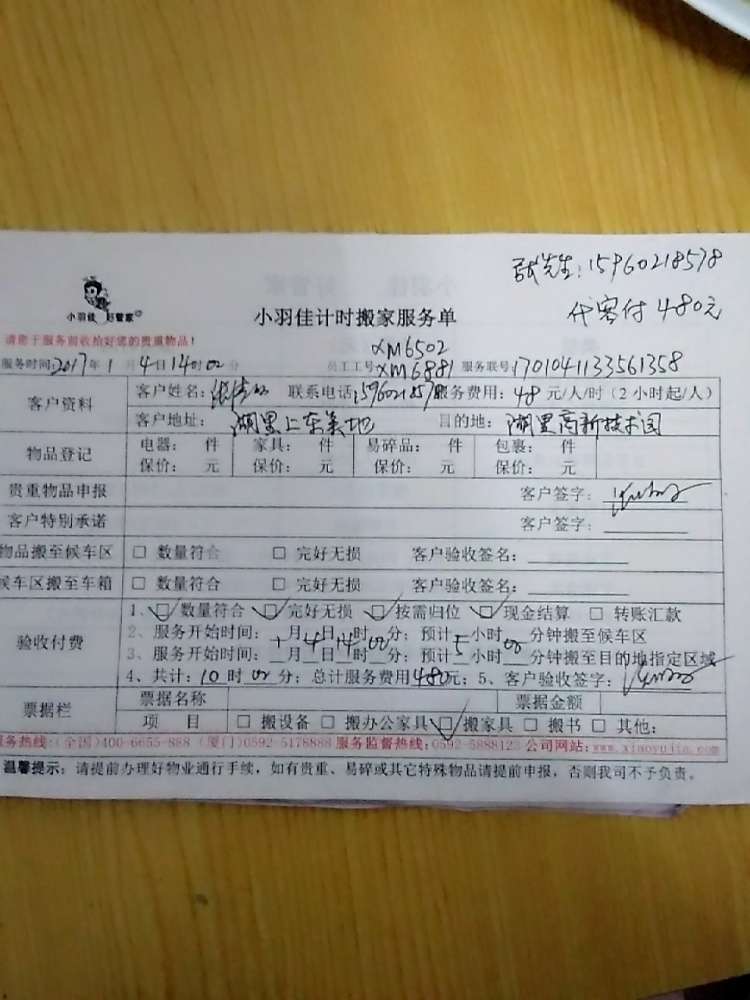 先生:15960218578
代客付480元
小羽佳 好管家
小羽佳计时搬家服务单
请您于服务前收拾好您的贵重物品!
XM6502
服务时间:2017年1月4日14时00分 员工工号XM6881 服务联号1701041133561358
客户资料 客户姓名: 联系电话: 服务费用:48元/人/时(2小时起/人)
客户地址:湖里上东美地 目的地:湖里高新技术园
物品登记 电器: 件 家具: 件 易碎品: 件 包裹: 件
保价: 元 保价: 元 保价: 元 保价: 元
贵重物品申报 客户签字:
客户特别承诺 客户签字:
物品搬至候车区 □ 数量符合 □ 完好无损 客户验收签名:
候车区搬至车箱 □ 数量符合 □ 完好无损 客户验收签名:
验收付费 1、☑数量符合 ☑完好无损 ☑按需归位 ☑现金结算 □ 转账汇款
2、服务开始时间:1月4日14时00分;预计5小时00分钟搬至候车区
3、服务开始时间: 月 日 时 分;预计 小时 分钟搬至目的地指定区域
4、共计:10时00分;总计服务费用480元;5、客户验收签字:
票据栏 票据名称 票据金额
项 目 □ 搬设备 □ 搬办公家具 ☑搬家具 □ 搬书 □ 其他:
服务热线:(全国)400-6655-888 (厦门)0592-5178888 服务监督热线:0592-5888123 公司网站:www.xiaoyujia.com
温馨提示:请提前办理好物业通行手续,如有贵重、易碎或其它特殊物品请提前申报,否则我司不予负责。